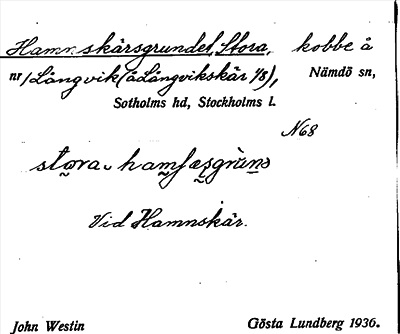 Hamnskärsgrundet, Stora, kobbe å
nr 1 Långvik (å Långvikskär 1/8), Nämdö sn,
Sotholms hd, Stockholms l.
N68
stora
Vid Hamnskär.
John Westin Gösta Lundberg 1936.